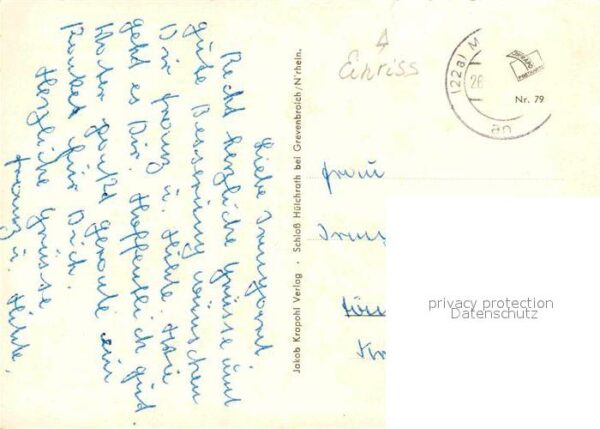 Liebe Irmgard
Recht herzliche Grüsse und
gute Besserung wünschen
Dir Franz u. Hilde. Wie
geht es Dir. Hoffentlich gut
Walter packt gerade ein
Paket für Dich.
Herzliche Grüsse
Franz u. Hilde.
Jakob Krapohl Verlag · Schloß Hülchrath bei Grevenbroich/N'rhein.
Einriss
(22a) M
26
Nr. 79
Frau
Irm
privacy protection
Datenschutz